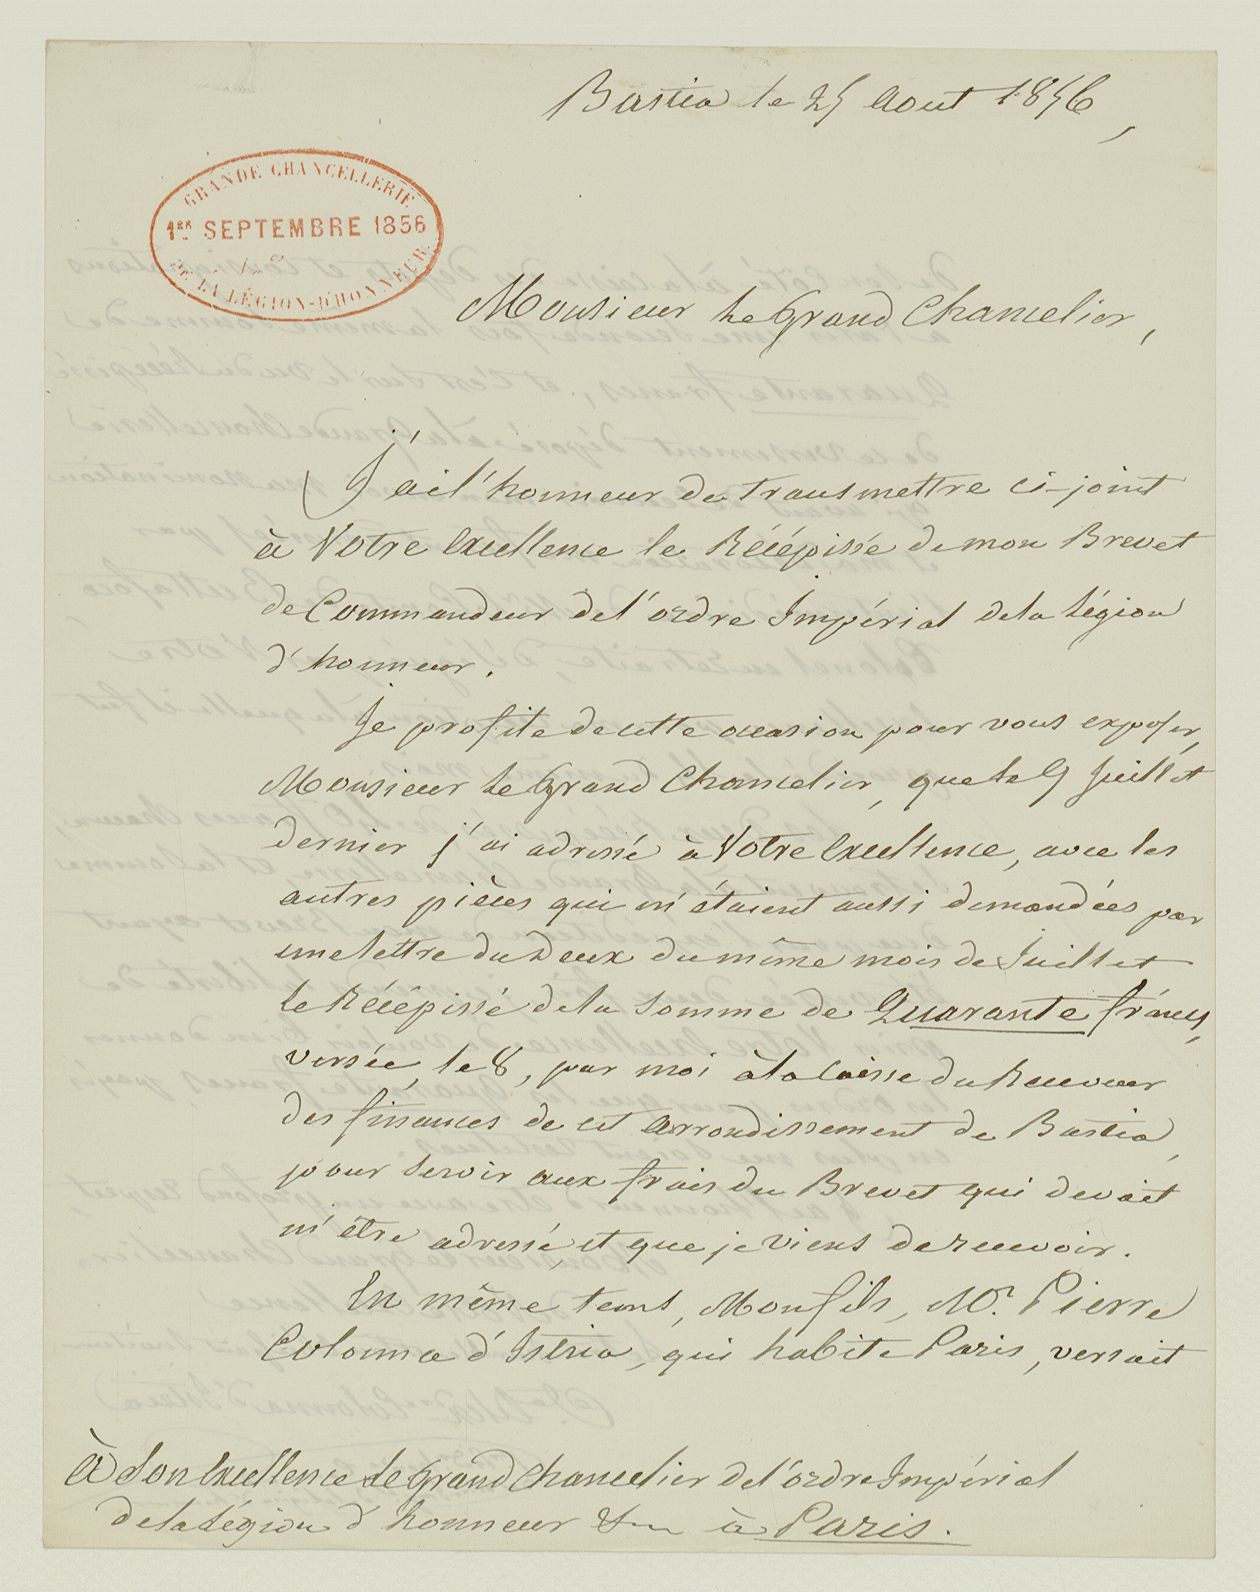 Bastia le 25 Aout 1856,
GRANDE CHANCELLERIE
1ER SEPTEMBRE 1856
DE LA LÉGION-D'HONNEUR
Monsieur Le Grand Chancelier,
J'ai l'honneur de transmettre ci-joint
à Votre Excellence le Récépissé de mon Brevet
de Commandeur de l'ordre Impérial de la Légion
d'honneur.
Je profite de cette occasion pour vous exposer,
Monsieur Le Grand Chancelier, que le 9 Juillet
dernier j'ai adressé à Votre Excellence, avec les
autres pièces qui m'étaient aussi demandées par
une lettre du Deux du même mois de Juillet
le Récépissé de la somme de Quarante francs,
versée, le 8, par moi à la caisse du Receveur
des finances de cet Arrondissement de Bastia,
pour servir aux frais du Brevet qui devait
m'être adressé, et que je viens de recevoir.
En même tems, Mon fils, Mr. Pierre
Colonna d'Istria, qui habite Paris, versait
à Son Excellence Le Grand Chancelier de l'ordre Impérial
de la Légion d'honneur à Paris.